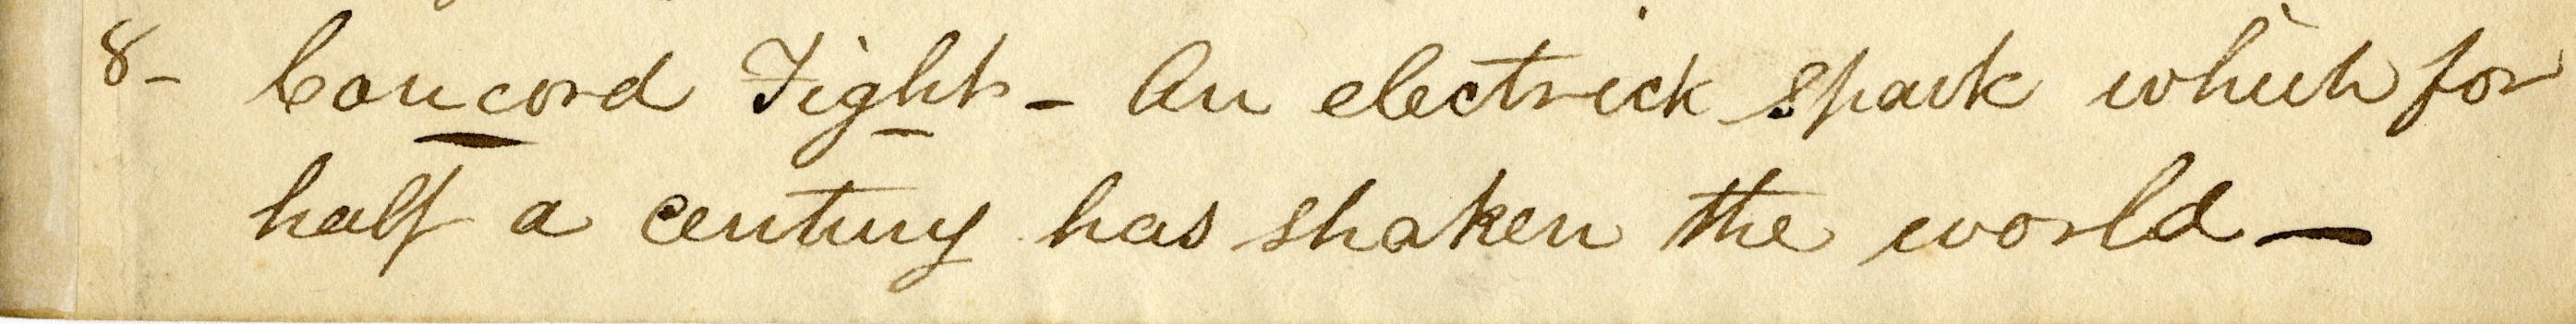 8- Concord Fight - An electrick spark which for
half a century has shaken the world —